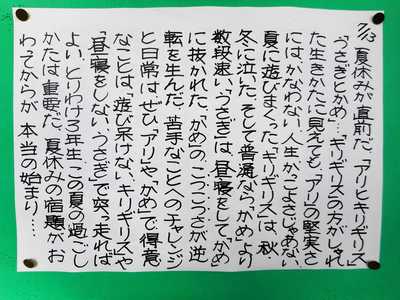 7/13 夏休みが直前だ。「アリとキリギリス」
「うさぎとかめ」…キリギリスの方がしゃれ
た生きかたに見えても、「アリ」の堅実さ
にはかなわない。人生かっこよさじゃあない。
夏に遊びまくった「キリギリス」は、秋・
冬に泣いた。そして普通ならかめより
数段速い「うさぎ」は、昼寝をして「かめ」
に抜かれた。「かめ」の、こつこつさが逆
転を生んだ。苦手なことへのチャレンジ
と日常は、ぜひ「アリ」や「かめ」で、得意
なことは、「遊び呆けない、キリギリス」や
「昼寝をしない、うさぎ」で突っ走れば
よい。とりわけ3年生、この夏の過ごし
かたは重要だ。夏休みの宿題がお
わってからが、本当の始まり…。